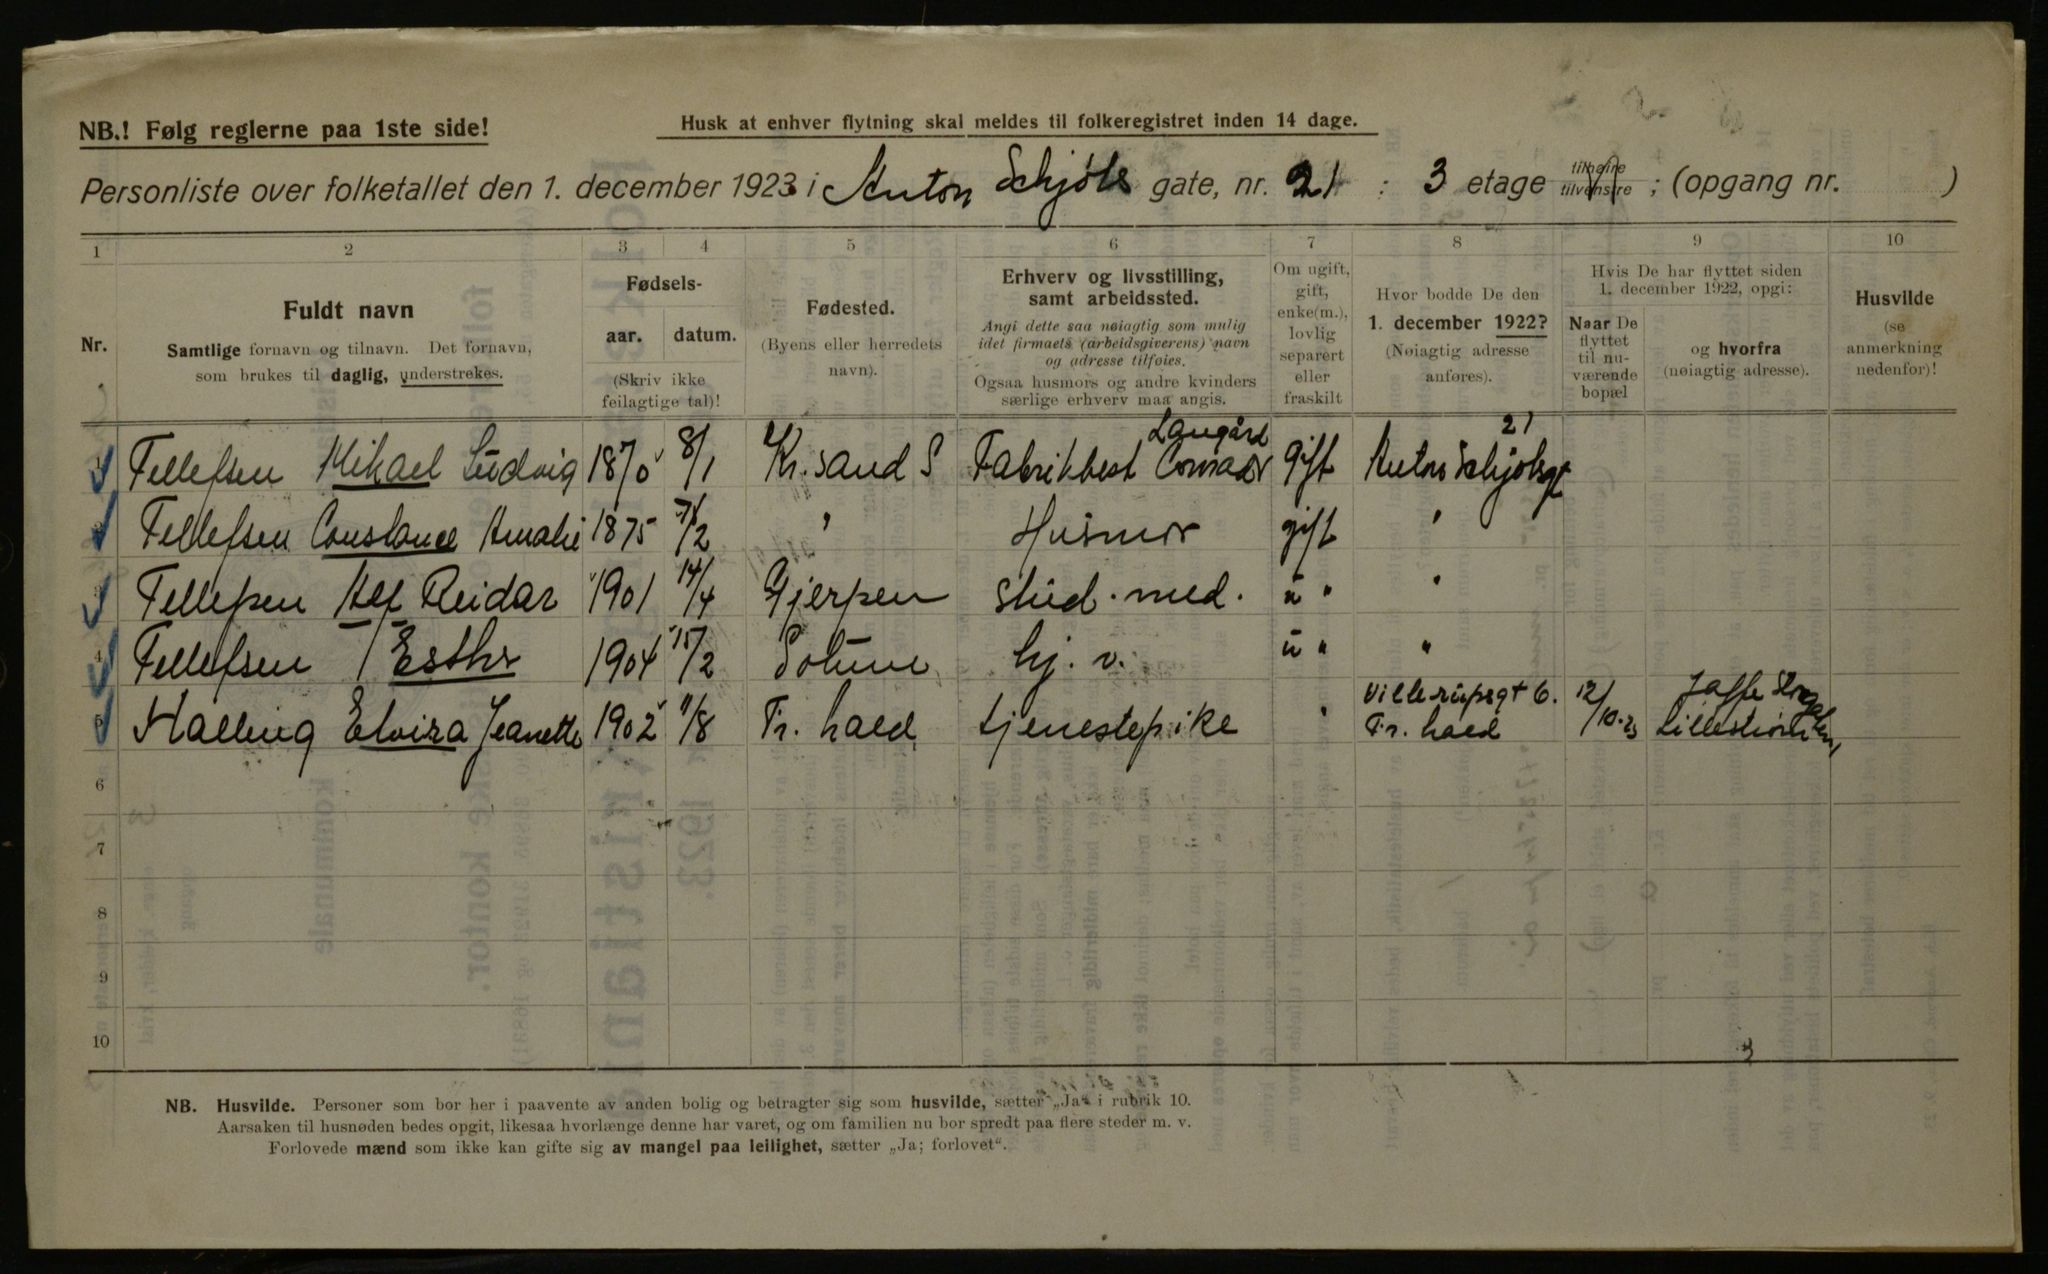 NB.! Følg reglerne paa 1ste side!
Husk at enhver flytning skal meldes til folkeregistret inden 14 dage.
Personliste over folketallet den 1. december 1923 i Anton Schjøls gate, nr. 21 : 3 etage tilhøire tilvenstre ; (opgang nr. )
1 2 3 4 5 6 7 8 9 10
Nr.
Fuldt navn
Samtlige fornavn og tilnavn. Det fornavn,
som brukes til daglig, understrekes.
Fødsels-
aar. datum.
(Skriv ikke
feilagtige tal)!
Fødested.
(Byens eller herredets
navn).
Erhverv og livsstilling,
samt arbeidssted.
Angi dette saa nøiagtig som mulig
idet firmaets (arbeidsgiverens) navn
og adresse tilføies.
Ogsaa husmors og andre kvinders
særlige erhverv maa angis.
Om ugift,
gift,
enke(m.),
lovlig
separert
eller
fraskilt
Hvor bodde De den
1. december 1922?
(Nøiagtig adresse
anføres).
Hvis De har flyttet siden
1. december 1922, opgi:
Naar De
flyttet
til nu-
værende
bopæl
og hvorfra
(nøiagtig adresse).
Husvilde
(se
anmerkning
nedenfor)!
1 Tellefsen Mikael Ludvig 1870 8/1 Kr.sand S Fabrikbest Langård gift Anton Schjølsgt 21
2 Tellefsen Constance Amalie 1875 /2 " Husmor gift "
3 Tellefsen Alf Reidar 1901 14/4 Gjerpen stud. med. u " "
4 Tellefsen Esther 1904 15/2 Solum hj. v. u " "
5 Malling Elvira Jeanette 1902 11/8 Fr. hald tjenestepike " 6. Fr. hald 12/10.23 Lillestrøm
6
7
8
9
10
NB. Husvilde. Personer som bor her i paavente av anden bolig og betragter sig som husvilde, sætter „Ja“ i rubrik 10.
Aarsaken til husnøden bedes opgit, likesaa hvorlænge denne har varet, og om familien nu bor spredt paa flere steder m. v.
Forlovede mænd som ikke kan gifte sig av mangel paa leilighet, sætter „Ja; forlovet“.